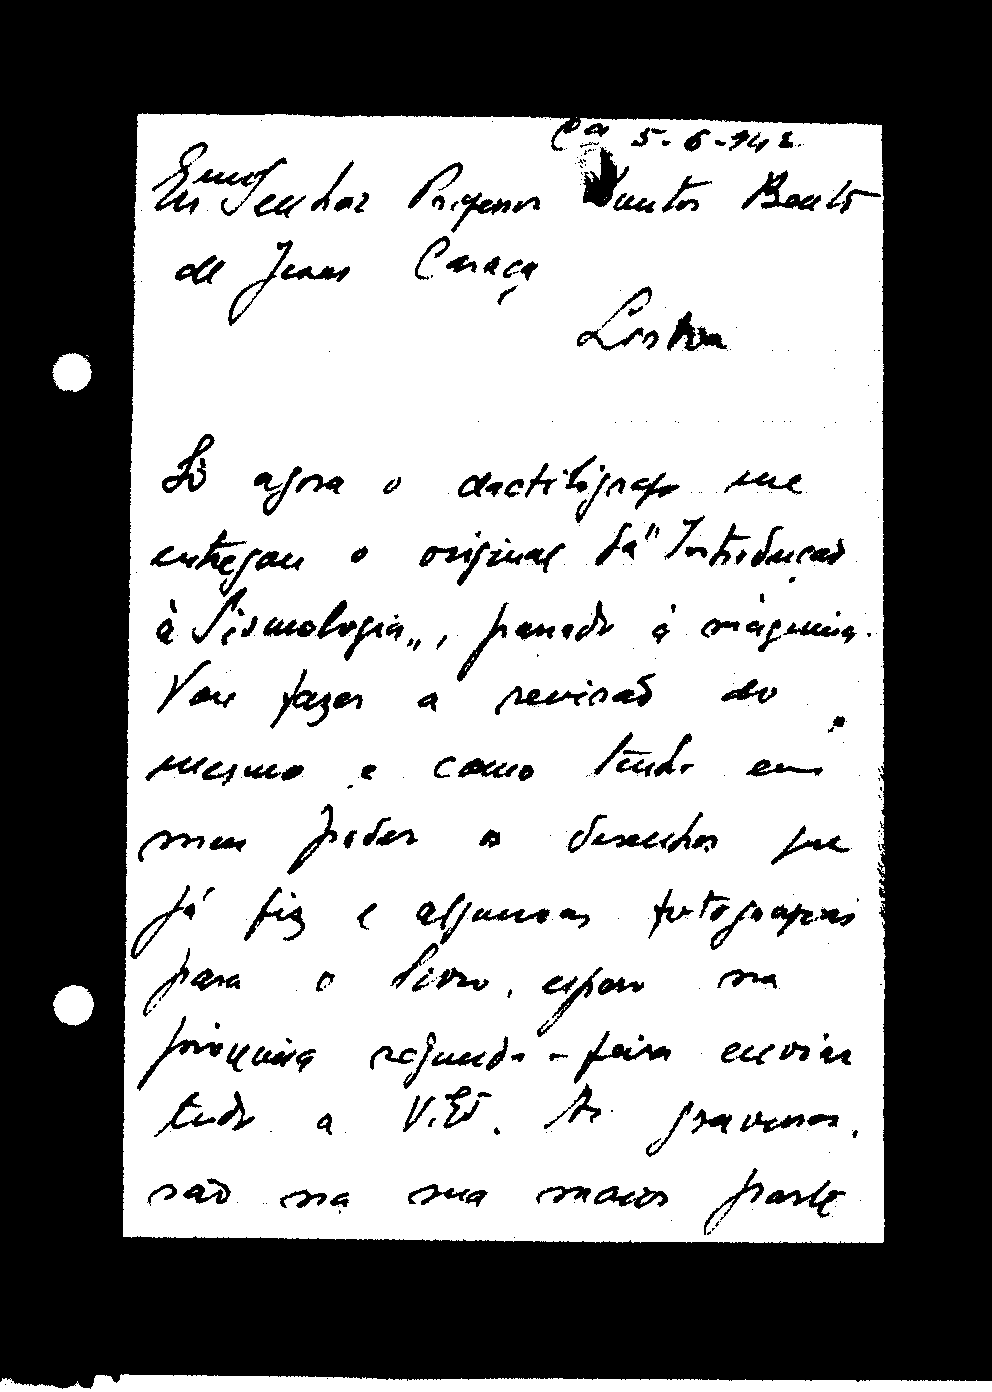 Cª 5-6-942
Exmo Senhor Professor Doutor Bento
de Jesus Caraça
Lisboa
Só agora o dactilógrafo me
entregou o original da "Introdução
à Sismologia", passado à máquina.
Vou fazer a revisão do
mesmo e como tenho em
meu poder os desenhos que
já fiz e algumas fotografias
para o livro, espero na
próxima segunda-feira enviar
tudo a V. Exª. As gravuras,
são na sua maior parte